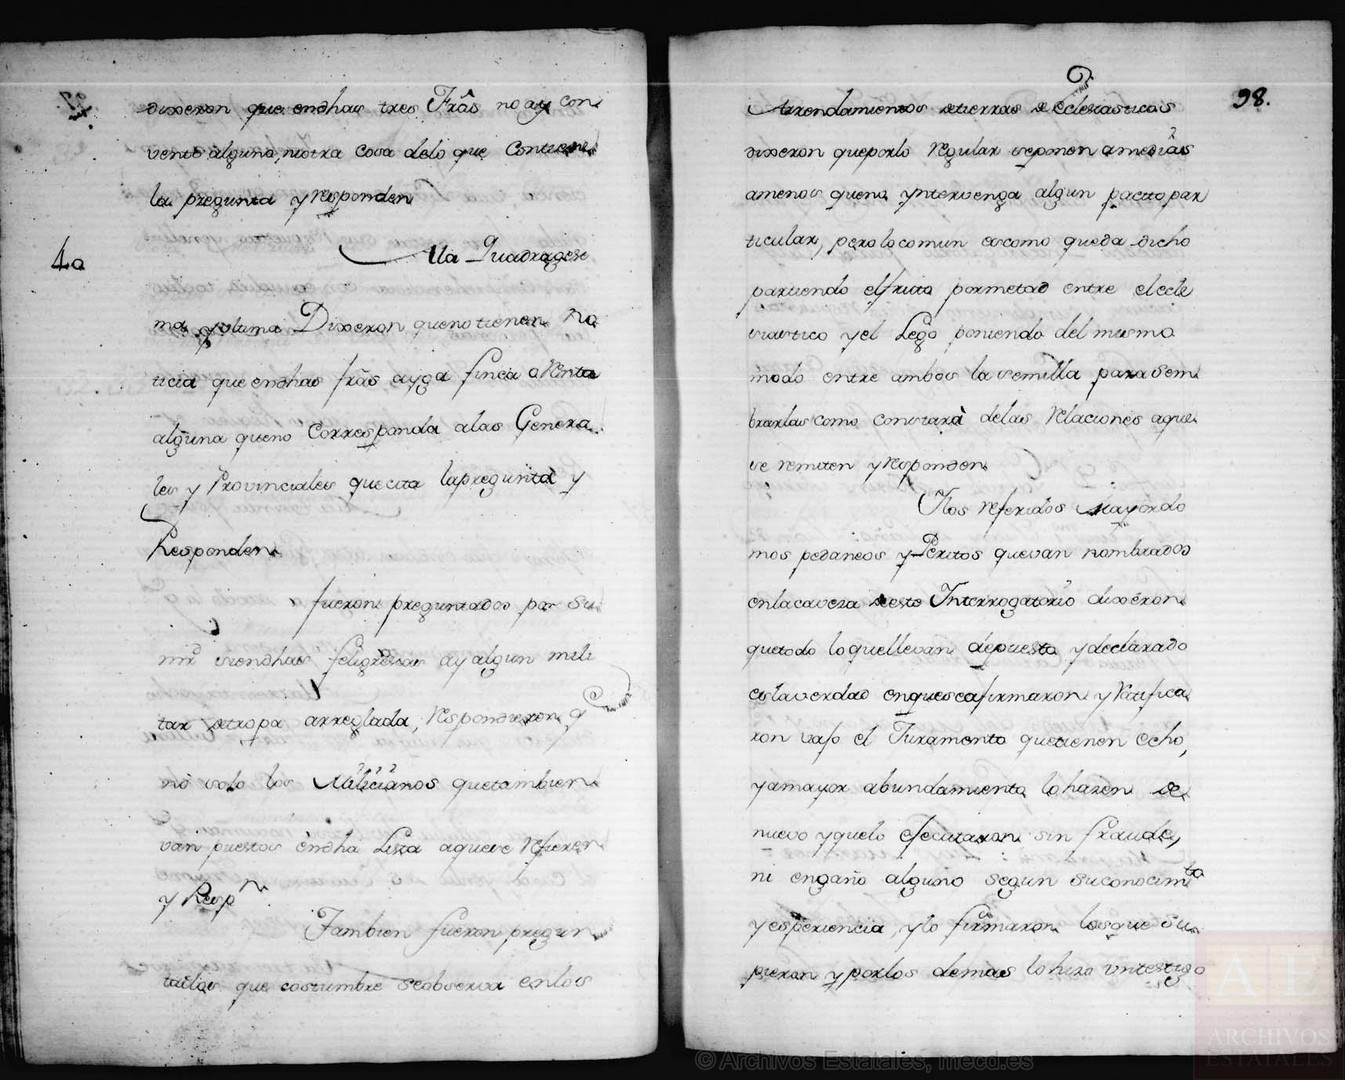 dixeron que endhas tres Frâs no ay con
vento alguno, niotra cosa delo que contiene
la pregunta y responden
40
Ala Quadragesi
ma y vltima Dixeron queno tienen No
ticia que endhas frâs ayga finca o Renta
alguna queno Corresponda alas Genera
les y Provinciales que cita la pregunta y
Responden
fueron preguntados por Su
mrd siendhas feligresias ay algun mili
tar detropa arreglada, Respondieron q
nò solo los Milicianos que tambien
van puestos êndha Lista aquese refieren
y Respn
Tambien fueron pregun
tados que costumbre seobserva enlos
98.
Arrendamientos detierras de Eclesiasticos
dixeron queporlo Regular seponen amedias
amenos queno yntervenga algun pacto par
ticular, pero lo comun es como queda dicho
partiendo elfruto pormetad entre elecle
siastico y el Lego poniendo del mismo
modo entre ambos la semilla para sem
brarlas como constarà delas Relaciones aque
se remiten y responden
Nos referidos Mayordo
mos pedaneos y Peritos quevan nombrados
enlacaveza deeste Interrogatorio dixeron
quetodo loquellevan depuesto y declarado
eslaverdad enquese afirmaron y Ratifica
ron vajo el Juramento quetienen echo,
yamayor abundamiento lo hazen de
nuevo yquelo efecutaron sin fraude,
ni engaño alguno segun suconocimto
y esperiencia, y lo firmaron losque su
pieron y porlos demas lo hizo vntestigo
© Archivos Estatales, mecd.es
AL
ARCHIVOS
ESTATALES